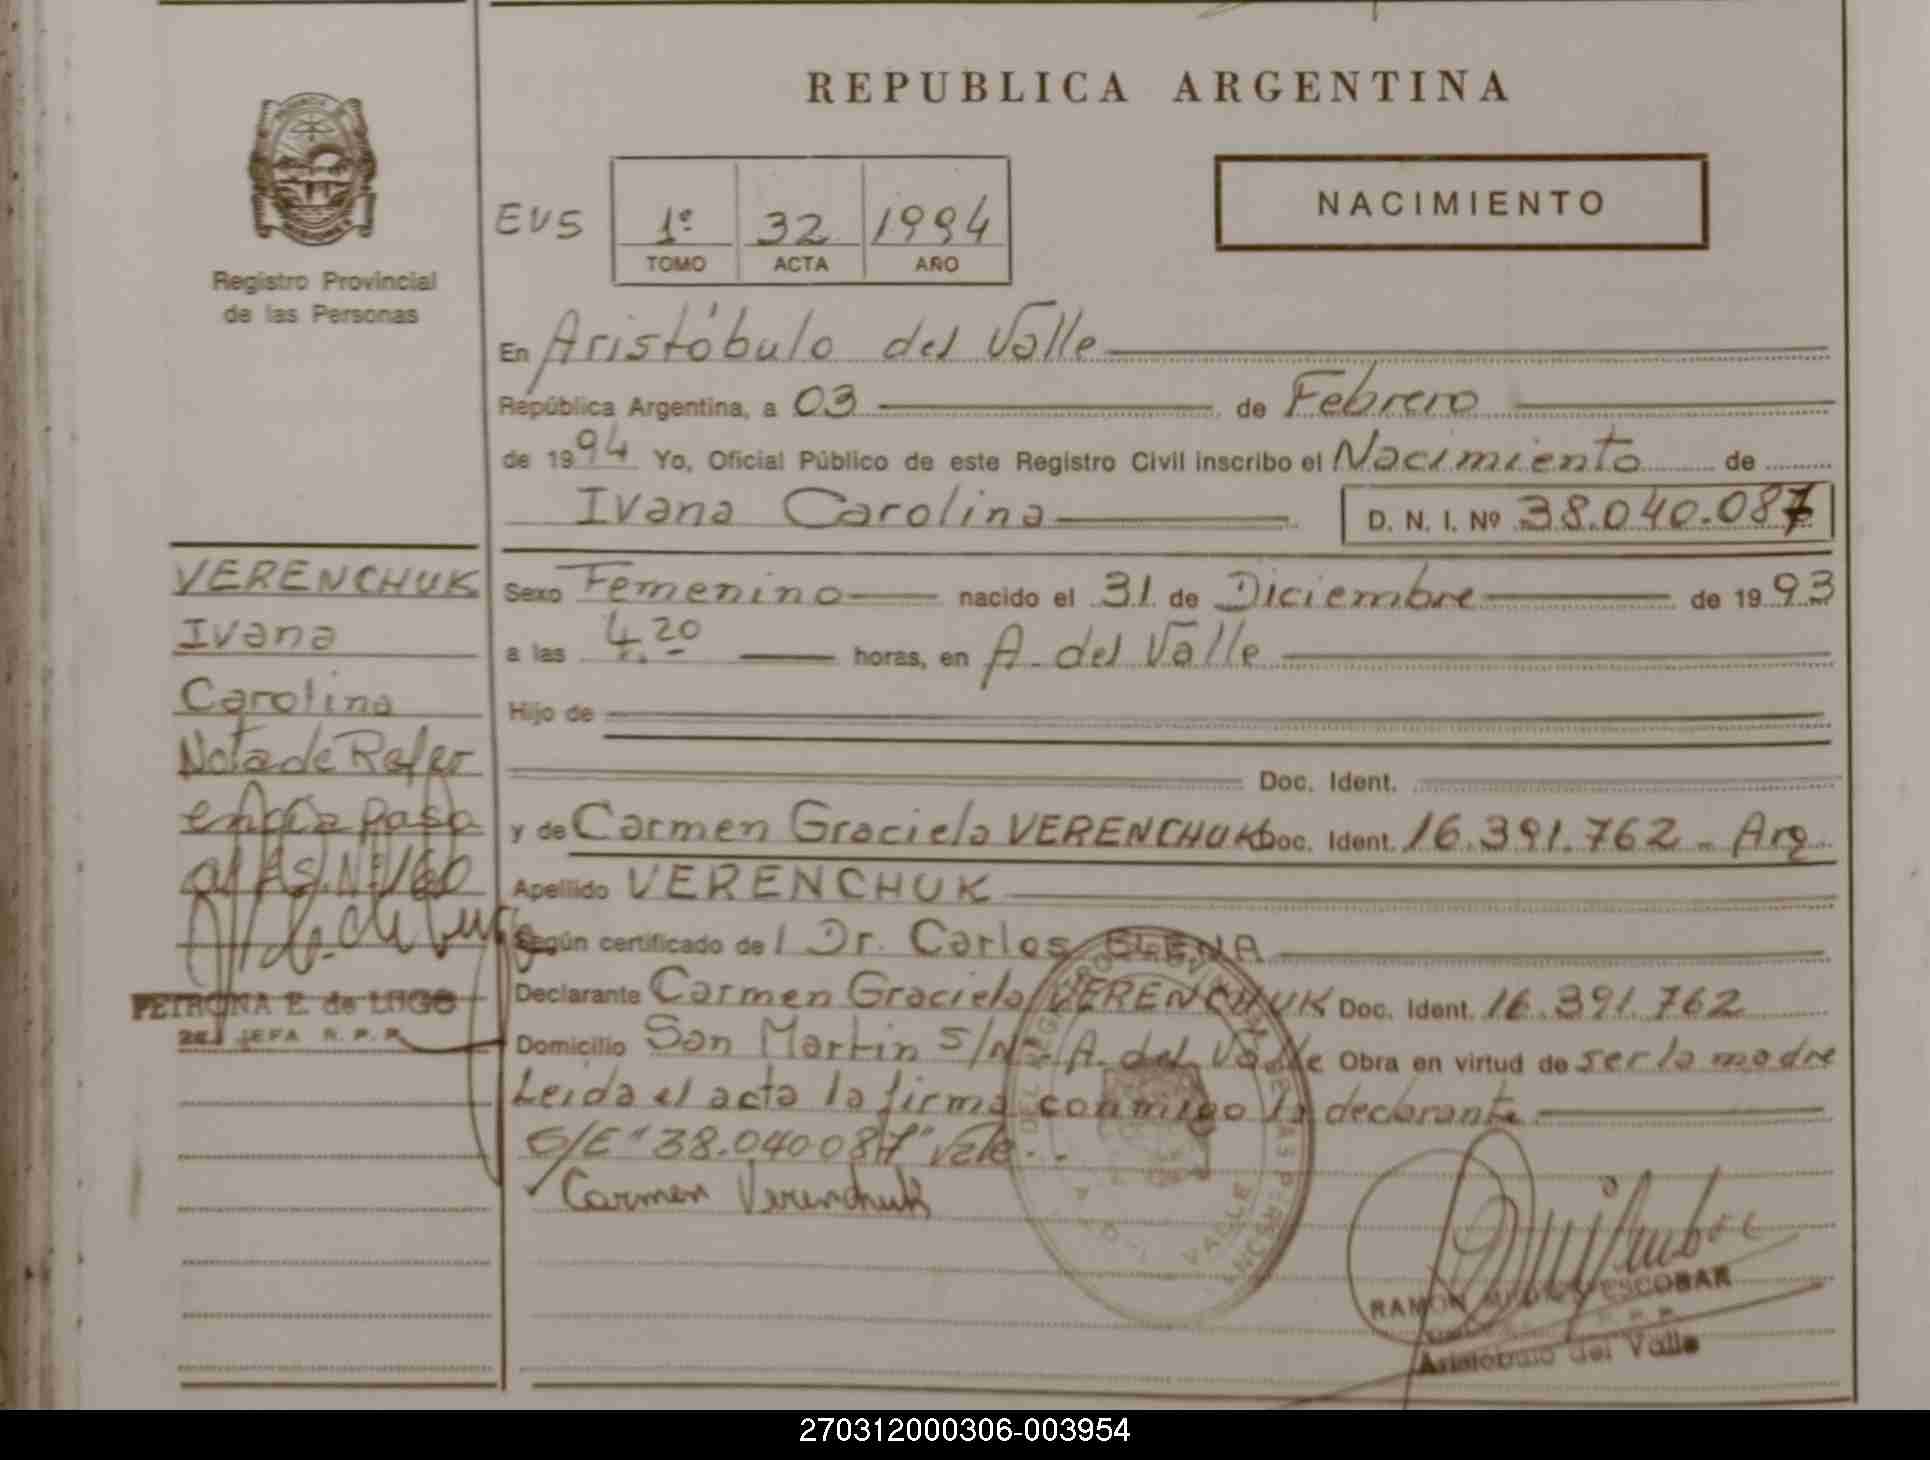 REPUBLICA ARGENTINA
Registro Provincial
de las Personas
EV5 1º 32 1994
TOMO ACTA AÑO
NACIMIENTO
En Aristóbulo del Valle
República Argentina, a 03 de Febrero
de 1994 Yo, Oficial Público de este Registro Civil inscribo el Nacimiento de
Ivana Carolina D. N. I. Nº 38.040.087
VERENCHUK
Ivana
Carolina
Nota de Refer
encia pasa
al As. Nº 160
PETRONA E. de LUGO
JEFA R. P. P.
Sexo Femenino nacido el 31 de Diciembre de 1993
a las 4.20 horas, en A. del Valle
Hijo de
Doc. Ident.
y de Carmen Graciela VERENCHUK Doc. Ident. 16.391.762 - Arg.
Apellido VERENCHUK
Según certificado de Dr. Carlos ELENA
Declarante Carmen Graciela VERENCHUK Doc. Ident. 16.391.762
Domicilio San Martin S/Nº A. del Valle Obra en virtud de ser la madre
Leida el acta la firma conmigo la declarante
S/E "38.040087" Vale.
Carmen Verenchuk
RAMON ESCOBAR
Aristobulo del Valle
270312000306-003954